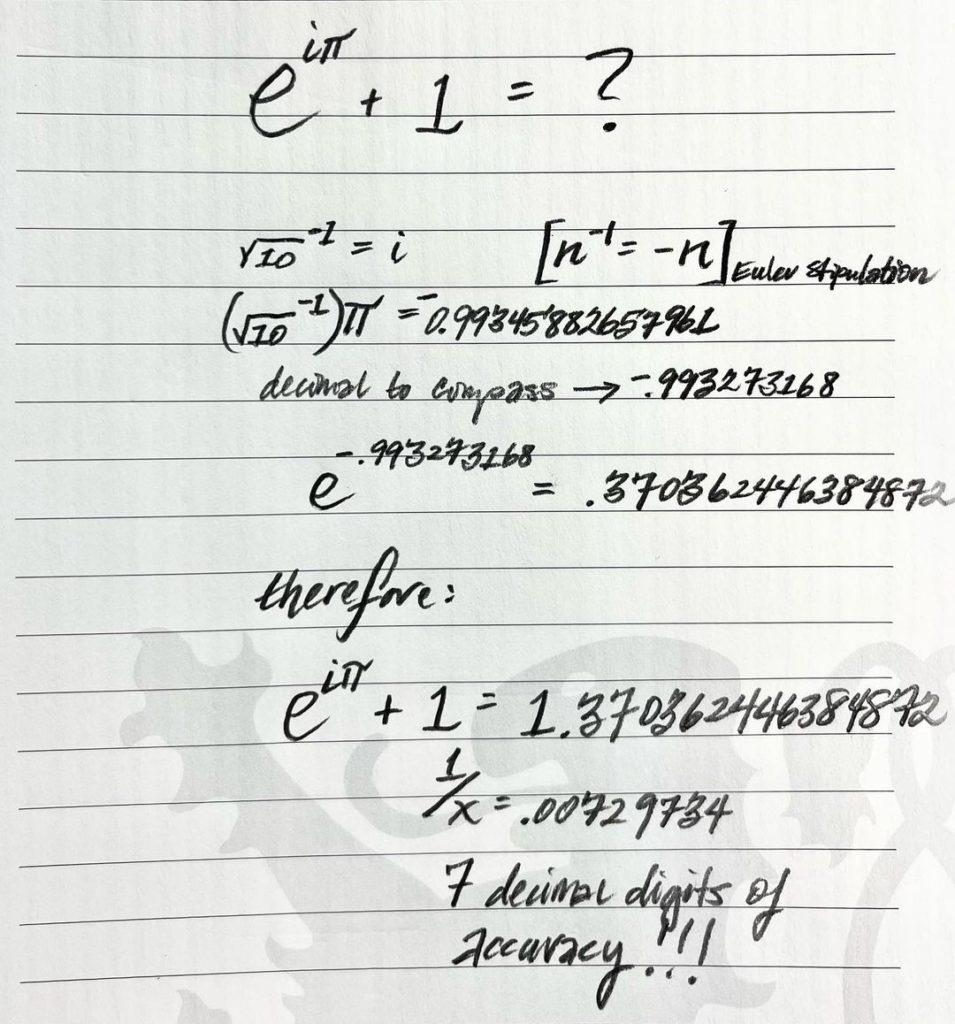 e^{iπ} + 1 = ?
√10^{-1} = i [n^{-1} = -n] Euler Stipulation
(√10^{-1})π = -0.99345882657961
decimal to compass → -.993273168
e^{-.993273168} = .370362446384872
therefore:
e^{iπ} + 1 = 1.370362446384872
1/x = .00729734
7 decimal digits of
accuracy!!!